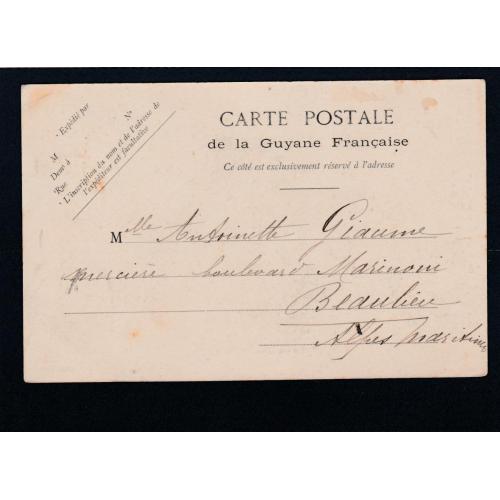 Expédié par
M
Dem<sup>t</sup> à
Rue
N°
L'inscription du nom et de l'adresse de
l'expéditeur est facultative
CARTE POSTALE
de la Guyane Française
Ce côté est exclusivement réservé à l'adresse
Melle Antoinette Giaume
mercière boulevard Marinoni
Beaulieu
Alpes Maritimes